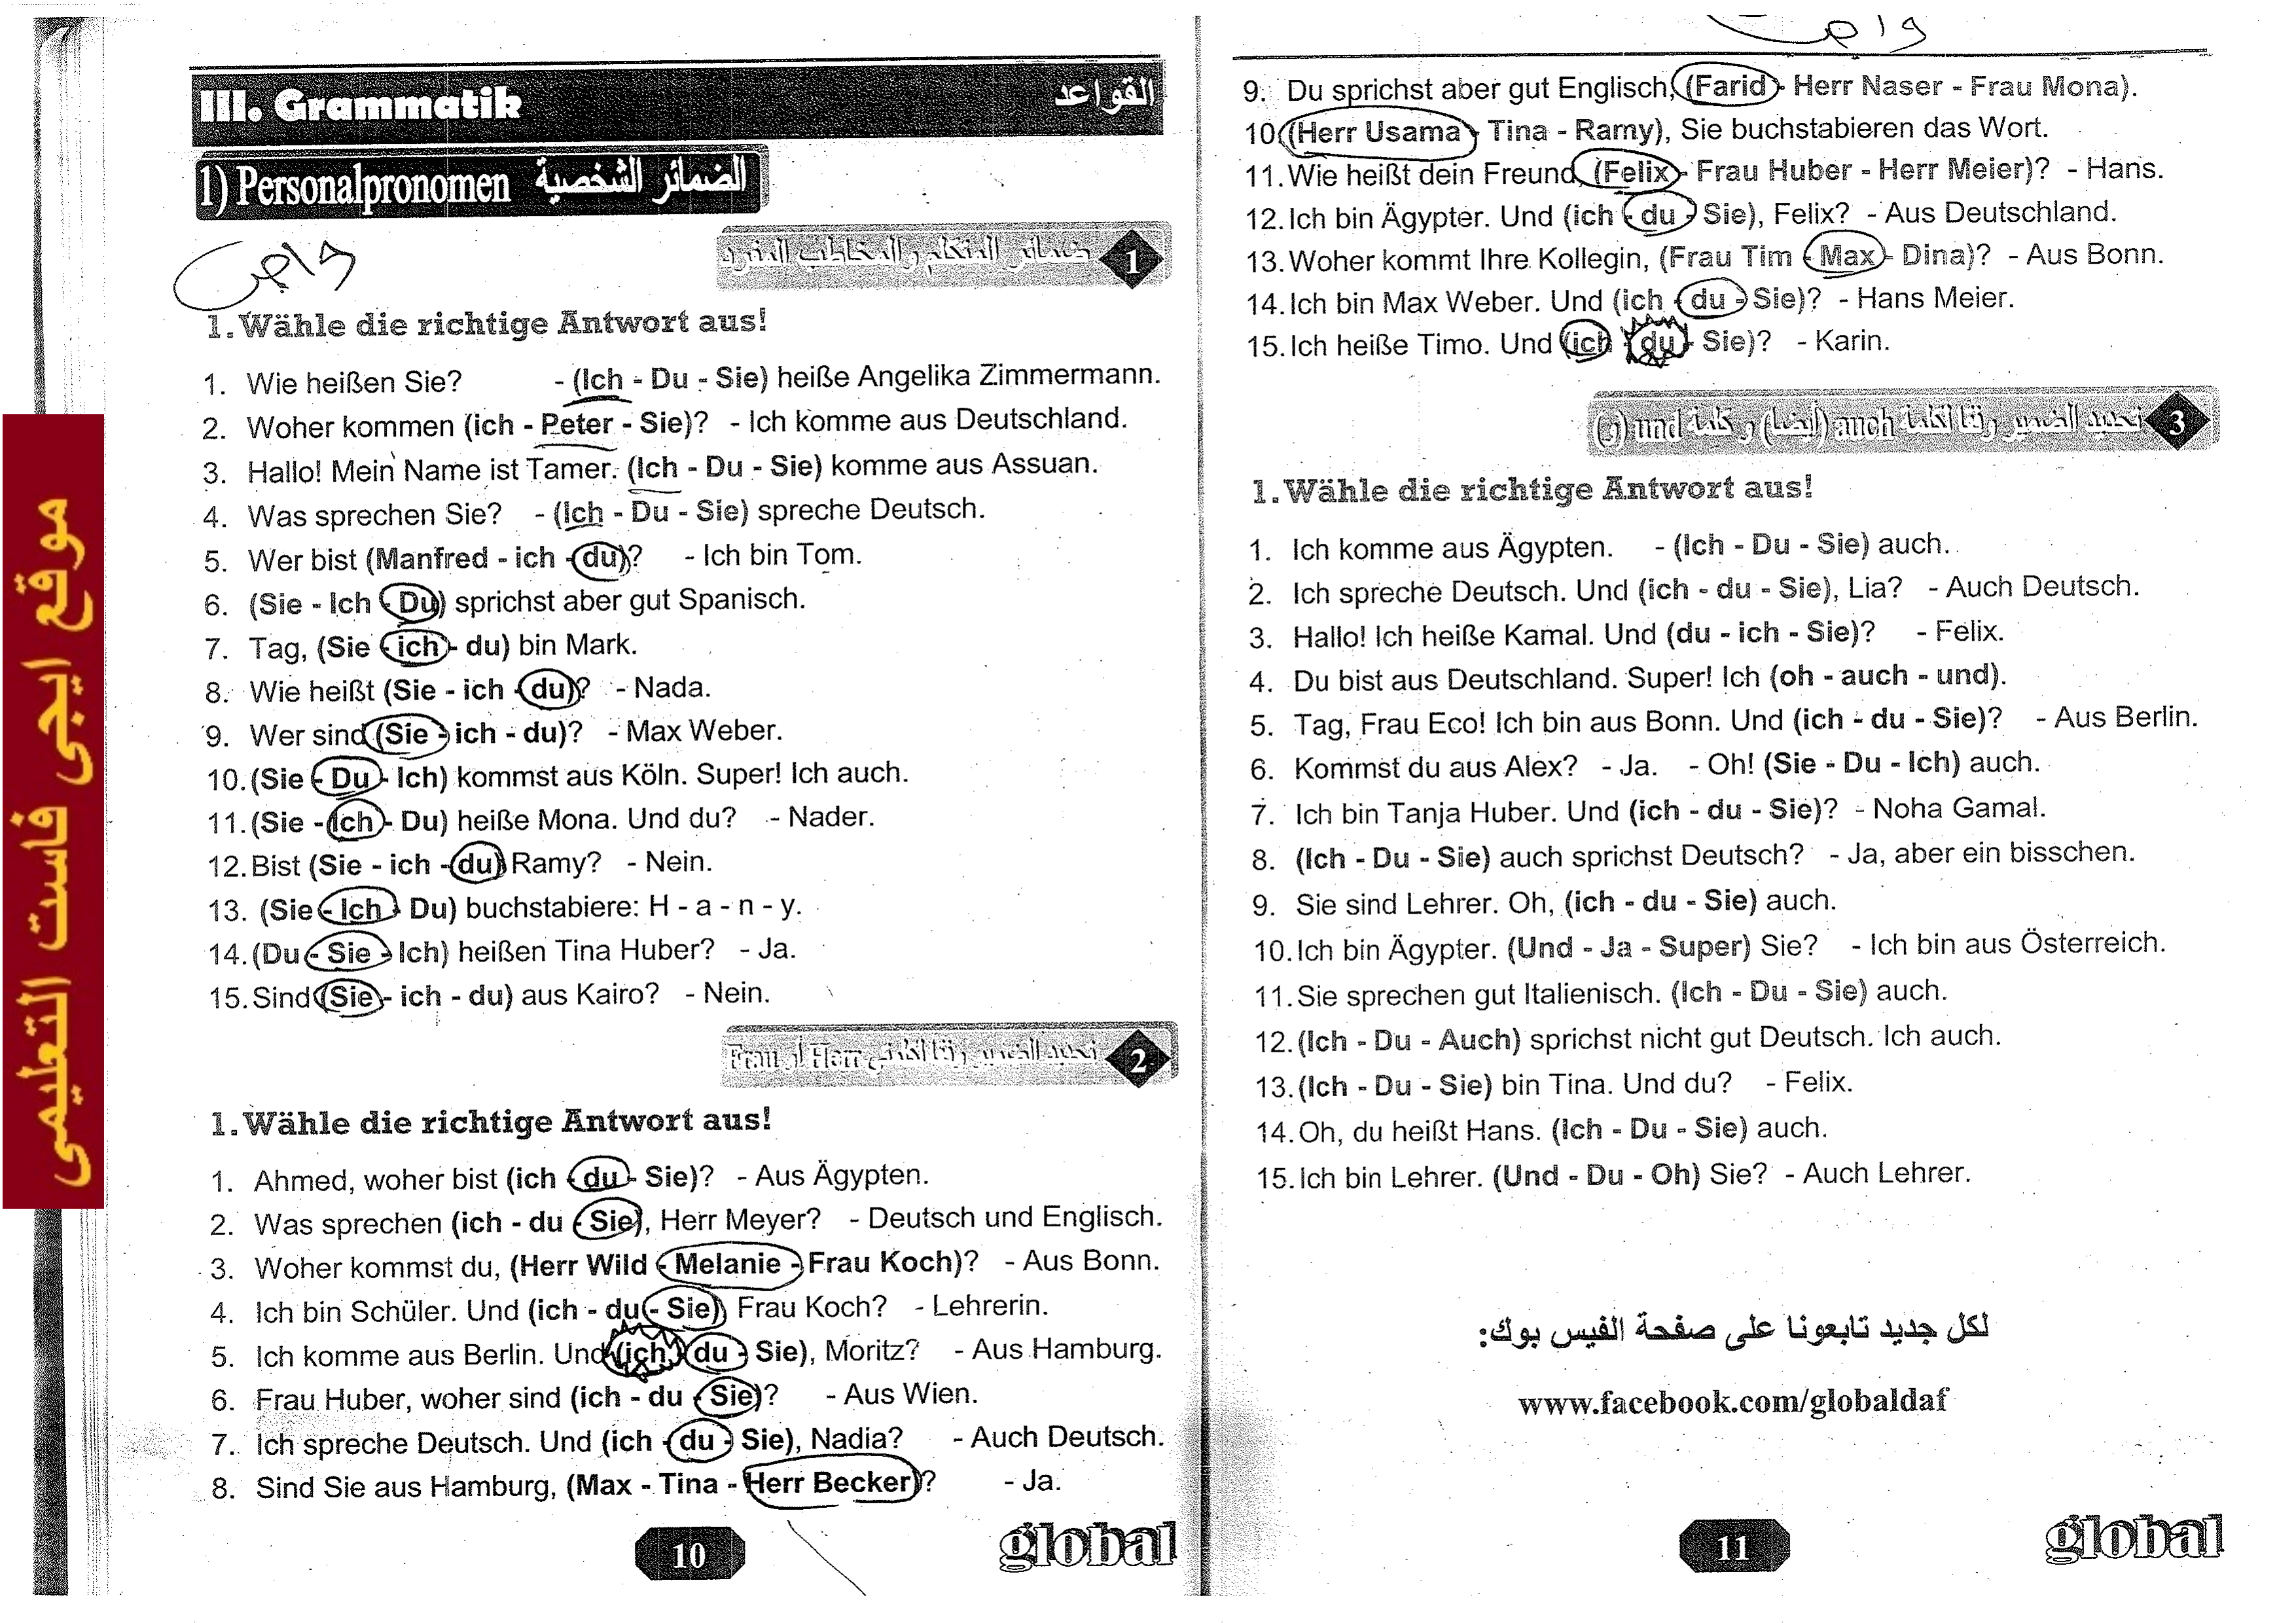 III. Grammatik القواعد
1) Personalpronomen الضمائر الشخصية
واجب
1 ضمائر المتكلم والمخاطب المفرد
1. Wähle die richtige Antwort aus!
1. Wie heißen Sie? - (Ich - Du - Sie) heiße Angelika Zimmermann.
2. Woher kommen (ich - Peter - Sie)? - Ich komme aus Deutschland.
3. Hallo! Mein Name ist Tamer. (Ich - Du - Sie) komme aus Assuan.
4. Was sprechen Sie? - (Ich - Du - Sie) spreche Deutsch.
5. Wer bist (Manfred - ich - du)? - Ich bin Tom.
6. (Sie - Ich - Du) sprichst aber gut Spanisch.
7. Tag, (Sie - ich - du) bin Mark.
8. Wie heißt (Sie - ich - du)? - Nada.
9. Wer sind (Sie - ich - du)? - Max Weber.
10. (Sie - Du - Ich) kommst aus Köln. Super! Ich auch.
11. (Sie - Ich - Du) heiße Mona. Und du? - Nader.
12. Bist (Sie - ich - du) Ramy? - Nein.
13. (Sie - Ich - Du) buchstabiere: H - a - n - y.
14. (Du - Sie - Ich) heißen Tina Huber? - Ja.
15. Sind (Sie - ich - du) aus Kairo? - Nein.
2 تحديد الضمير وفقا لكلمتي Herr أو Frau
1. Wähle die richtige Antwort aus!
1. Ahmed, woher bist (ich - du - Sie)? - Aus Ägypten.
2. Was sprechen (ich - du - Sie), Herr Meyer? - Deutsch und Englisch.
3. Woher kommst du, (Herr Wild - Melanie - Frau Koch)? - Aus Bonn.
4. Ich bin Schüler. Und (ich - du - Sie) Frau Koch? - Lehrerin.
5. Ich komme aus Berlin. Und (ich - du - Sie), Moritz? - Aus Hamburg.
6. Frau Huber, woher sind (ich - du - Sie)? - Aus Wien.
7. Ich spreche Deutsch. Und (ich - du - Sie), Nadia? - Auch Deutsch.
8. Sind Sie aus Hamburg, (Max - Tina - Herr Becker)? - Ja.
10
global
واجب
9. Du sprichst aber gut Englisch, (Farid - Herr Naser - Frau Mona).
10. (Herr Usama - Tina - Ramy), Sie buchstabieren das Wort.
11. Wie heißt dein Freund, (Felix - Frau Huber - Herr Meier)? - Hans.
12. Ich bin Ägypter. Und (ich - du - Sie), Felix? - Aus Deutschland.
13. Woher kommt Ihre Kollegin, (Frau Tim - Max - Dina)? - Aus Bonn.
14. Ich bin Max Weber. Und (ich - du - Sie)? - Hans Meier.
15. Ich heiße Timo. Und (ich - du - Sie)? - Karin.
3 تحديد الضمير وفقا لكلمة auch (أيضا) و كلمة und (و)
1. Wähle die richtige Antwort aus!
1. Ich komme aus Ägypten. - (Ich - Du - Sie) auch.
2. Ich spreche Deutsch. Und (ich - du - Sie), Lia? - Auch Deutsch.
3. Hallo! Ich heiße Kamal. Und (du - ich - Sie)? - Felix.
4. Du bist aus Deutschland. Super! Ich (oh - auch - und).
5. Tag, Frau Eco! Ich bin aus Bonn. Und (ich - du - Sie)? - Aus Berlin.
6. Kommst du aus Alex? - Ja. - Oh! (Sie - Du - Ich) auch.
7. Ich bin Tanja Huber. Und (ich - du - Sie)? - Noha Gamal.
8. (Ich - Du - Sie) auch sprichst Deutsch? - Ja, aber ein bisschen.
9. Sie sind Lehrer. Oh, (ich - du - Sie) auch.
10. Ich bin Ägypter. (Und - Ja - Super) Sie? - Ich bin aus Österreich.
11. Sie sprechen gut Italienisch. (Ich - Du - Sie) auch.
12. (Ich - Du - Auch) sprichst nicht gut Deutsch. Ich auch.
13. (Ich - Du - Sie) bin Tina. Und du? - Felix.
14. Oh, du heißt Hans. (Ich - Du - Sie) auch.
15. Ich bin Lehrer. (Und - Du - Oh) Sie? - Auch Lehrer.
لكل جديد تابعونا على صفحة الفيس بوك:
www.facebook.com/globaldaf
11
global
موقع ايجى فاست التعليمى